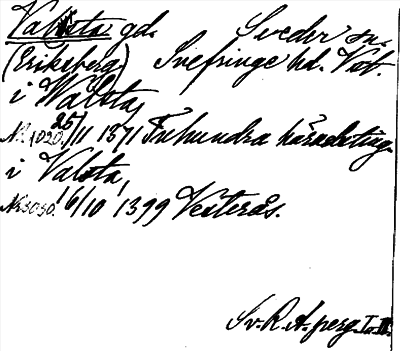 Valsta gd. Svedvi sn.
(Eriksberg) Snefringe hd. Vstl.
i Walsta,
Nr. 1020. 25/11 1371 Åkerbo häradsting.
i Valsta,
Nr. 3030. 16/10 1399 Västerås.
Sv. R. A. perg. I. II.